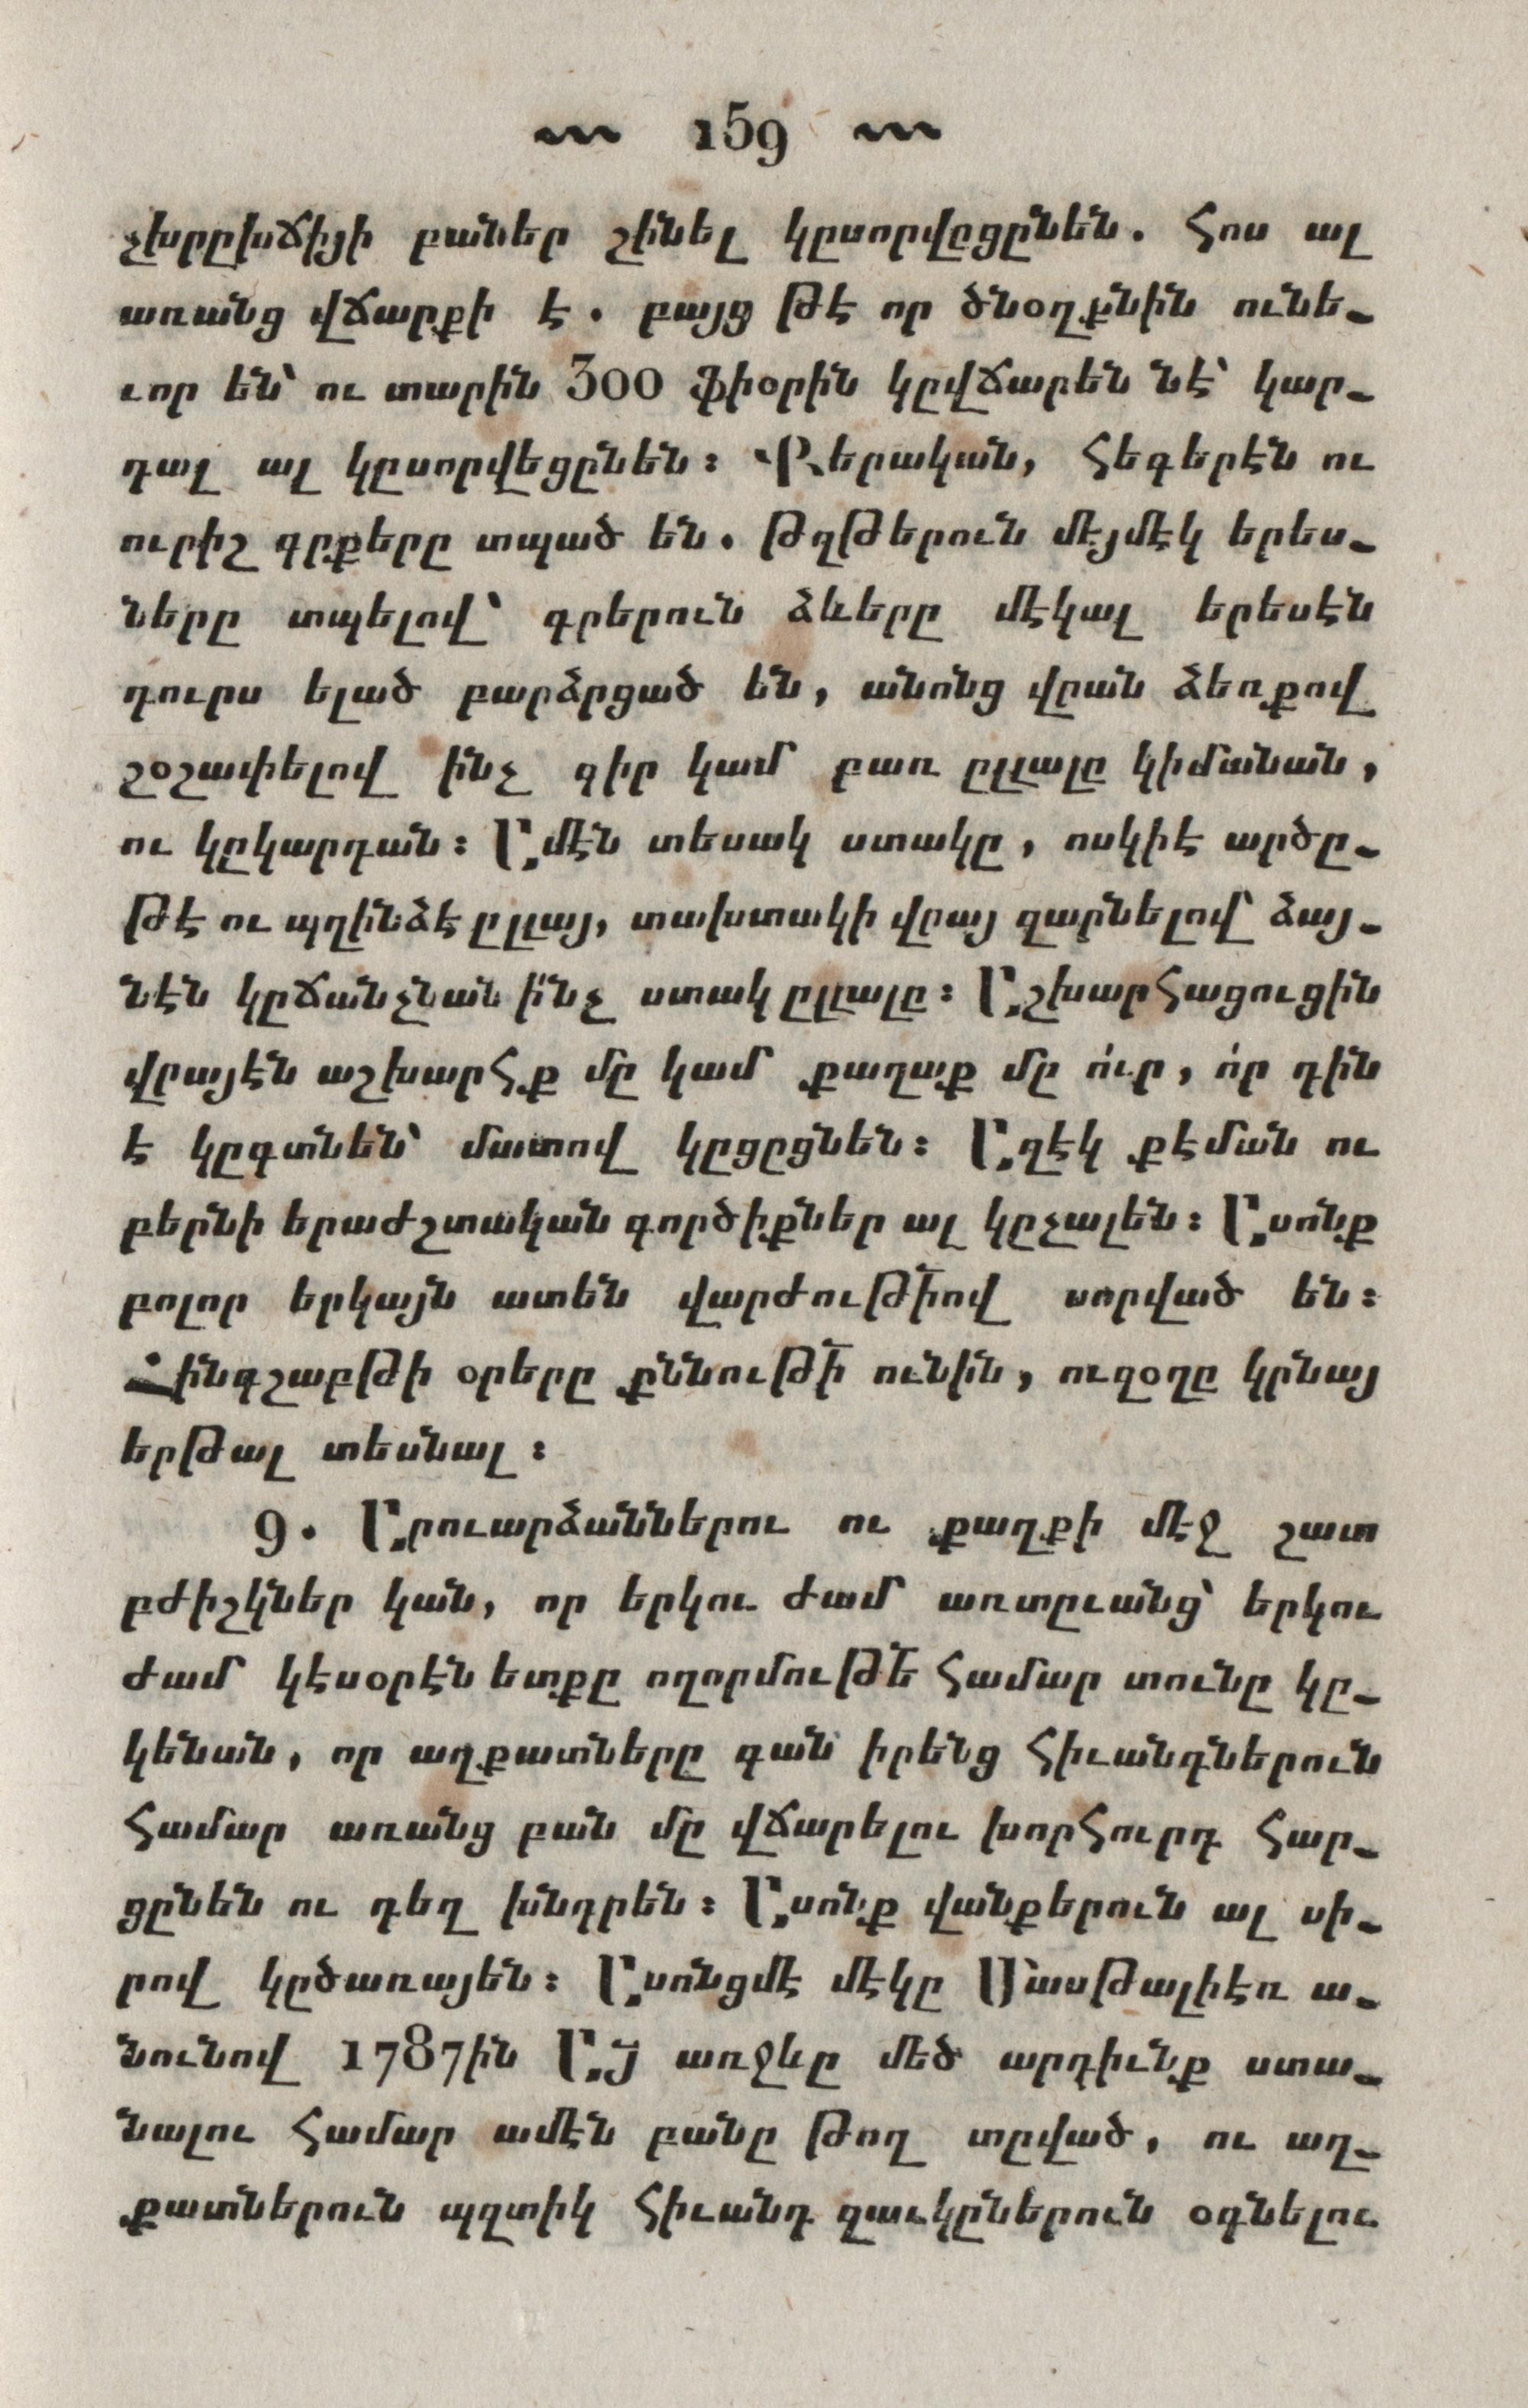 159
չխրըխճիյի բաներ շինել կըսորվըցընեն. Հոս ալ
առանց վճարքի է. բայց թէ որ ծնօղքնին ունե-
ւոր են՝ ու տարին 300 ֆիօրին կըվճարեն նէ՝ կար-
դալ ալ կըսորվեցընեն։ Քերական, հեգերէն ու
ուրիշ գրքերը տպած են. թղթերուն մէյմէկ երես-
ները տպելով՝ գրերուն ձևերը մէկալ երեսէն
դուրս ելած բարձրցած են, անոնց վըան ձեռքով
շօշափելով ինչ գիր կամ բառ ըլլալը կիմանան,
ու կըկարդան։ Ամէն տեսակ ստակը, ոսկիէ արծը-
թէ ու պղինձէ ըլլայ, տախտակի վըայ զարնելով՝ ձայ-
նէն կըճանչնան ի՛նչ ստակ ըլլալը։ Աշխարհացուցին
վըայէն աշխարհք մը կամ քաղաք մը ո՛ւր, ո՛ր դին
է կըգտնեն՝ մատով կըցըցնեն։ Աղէկ քէման ու
բերնի երաժշտական գործիքներ ալ կըչալեն։ Ասոնք
բոլոր երկայն ատեն վարժութիւով սորված են։
Հինգշաբթի օրերը քննութի ունին, ուզօղը կրնայ
երթալ տեսնալ։
9. Արուարձաններու ու քաղքի մէջ շատ
բժիշկներ կան, որ երկու ժամ առտըւանց՝ երկու
ժամ կէսօրէն ետքը ողորմութե համար տունը կը-
կենան, որ աղքատները գան իրենց հիւանդներուն
համար առանց բան մը վճարելու խորհուրդ հար-
ցընեն ու դեղ խնդրեն։ Ասոնք վանքերուն ալ սի-
րով կըծառայեն։ Ասոնցմէ մէկը Մասթալիէռ ա-
նունով 1787ին Այ առջևը մեծ արդիւնք ստա-
նալու համար ամէն բանը թող տըված, ու աղ-
քատներուն պզտիկ հիւանդ զաւկըներուն օգնելու